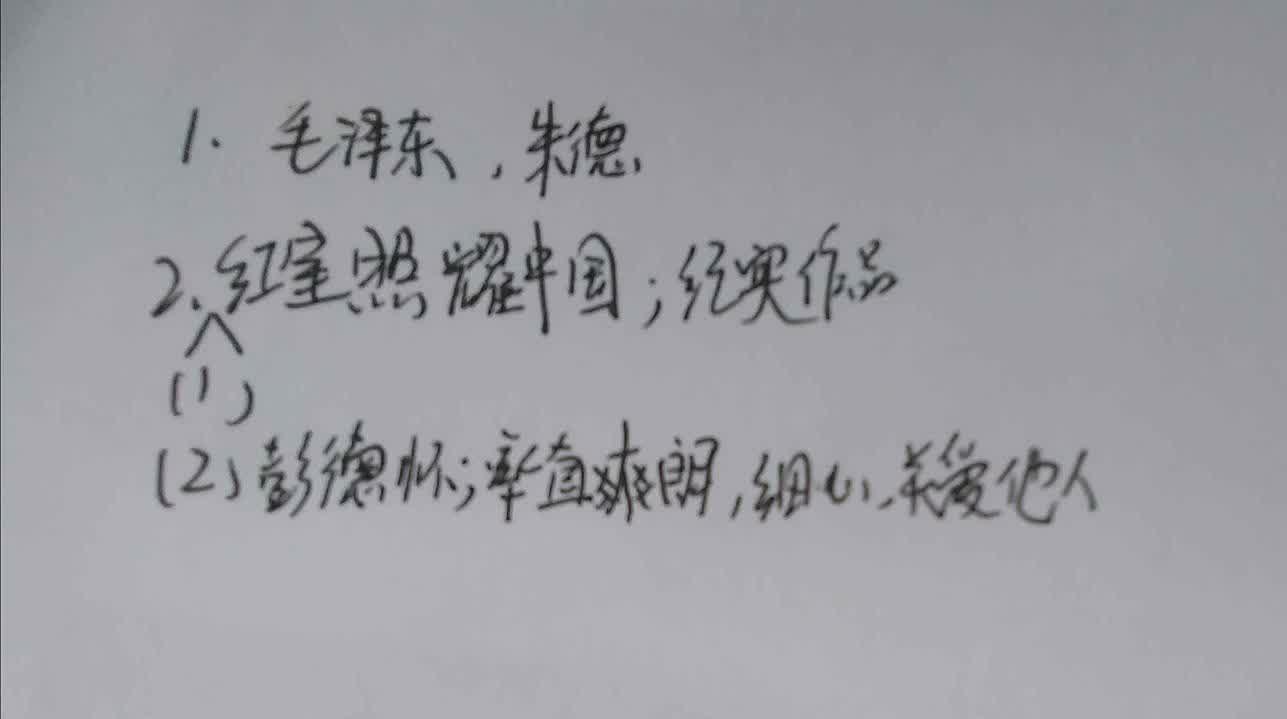 1. 毛泽东，朱德
2. 红星照耀中国；纪实作品
(1)
(2) 彭德怀；率直爽朗，细心，关爱他人